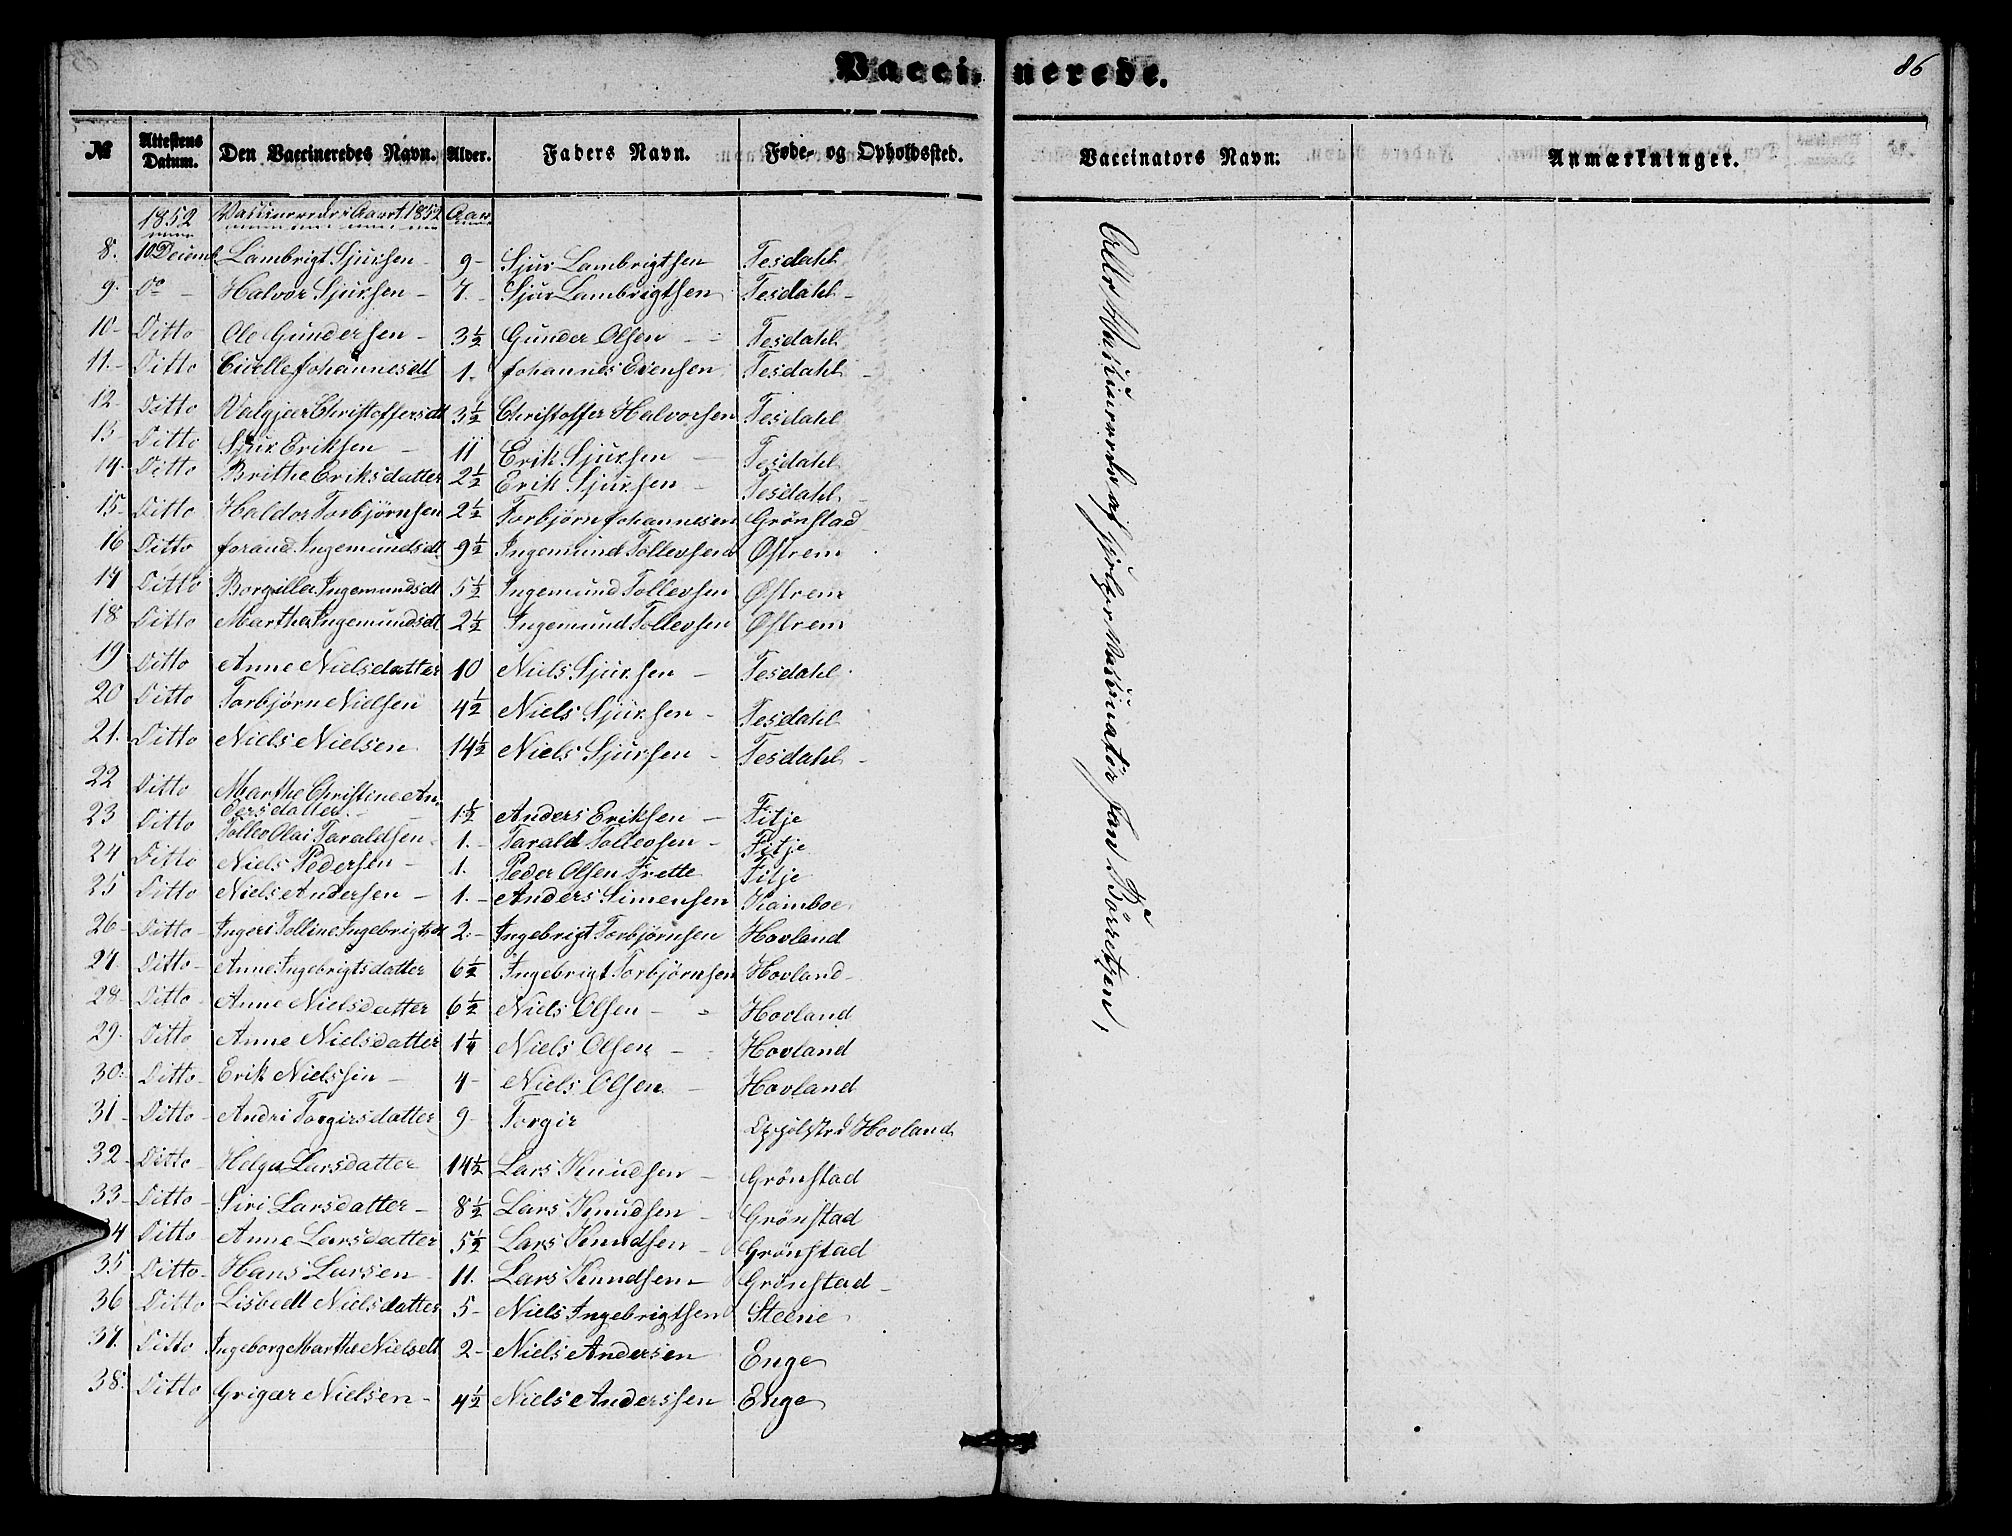 Vaccinerede.
86
№ Attestens Datum. Den Vaccineredes Navn. Alder. Faders Navn. Føde- og Opholdssted. Vaccinators Navn. Anmærkninger.
1852 Vaksinerede i Aaret 1852 Aar
8. 10 Decemb. Lambrigt Sjursen 9 - Sjur Lambrigtsen Tesdahl
9. Do - Halvor Sjursen - 7. - Sjur Lambrigtsen Tesdahl -
10 - Ditto Ole Gundersen - 3½ Gunder Olsen - Tesdahl
11. - Ditto Johannesdt 1. Johannes Evensen Tesdahl
12 - Ditto Valgjer Christoffersdt 3½ Christoffer Halvorsen Tesdahl
13 Ditto Sjur Eriksen - 11 Erik Sjursen - Tesdahl
14 - Ditto Brithe Eriksdatter 2½ Erik Sjursen - Tesdahl -
15 - Ditto Haldor Torbjørnsen 2½ Torbjørn Johannesen Grönstad
16 Ditto Jorand Ingemundsdt 9½ Ingemund Tollevsen Østrem
17 Ditto Borgille Ingemundsdt 5½ Ingemund Tollevsen Østrem
18 Ditto Marthe Ingemundsdt 2½ Ingemund Tollevsen Østrem
19 Ditto Anne Nielsdatter 10 Niels Sjursen - Tesdahl
20 Ditto Torbjørn Nielsen 4½ Niels Sjursen - Tesdahl
21. Ditto Niels Nielsen 14½ Niels Sjursen - Tesdahl -
22 Ditto Marthe Christine An-
dersdatter - 1½ Anders Eriksen - Fitje
23 Ditto Tollev Olai Taraldsen 1. - Tarald Tollevsen - Fitje
24 Ditto Niels Pedersen - 1. Peder Olsen Frette Fitje
25 Ditto Niels Andersen - 1. - Anders Simensen Kamboe
26 - Ditto - Ingeri Tolline Ingebrigtsdt 2. - Ingebrigt Torbjørnsen Hovland
27. Ditto - Anne Ingebrigtsdatter 6½ Ingebrigt Torbjørnsen Hovland -
28 - Ditto - Anne Nielsdatter 6½ Niels Olsen - Hovland
29. Ditto Anne Nielsdatter 1¼ Niels Olsen - Hovland
30. Ditto - Erik Nielssen - 4 - Niels Olsen - Hovland
31 - Ditto - Andri Torgirsdatter 9 - Torgir Hovland
32 - Ditto - Helga Larsdatter 14½ Lars Knudsen - Grönstad
33 - Ditto - Siri Larsdatter - 8½ Lars Knudsen - Grönstad
34 Ditto - Anne Larsdatter 5½ Lars Knudsen - Grönstad
35 Ditto - Hans Larsen - 11. Lars Knudsen - Grönstad -
36 Ditto Lisbedt Nielsdatter 5 - Niels Ingebrigtsen Steene
37. Ditto Ingeborg Marthe Nielsdt 2 - Niels Andersen Enge
38. Ditto Grigar Nielsen - 4½ Niels Anderssen Enge
Alle Vaksinerede af hjelpe Vaksinatør Børretzen,